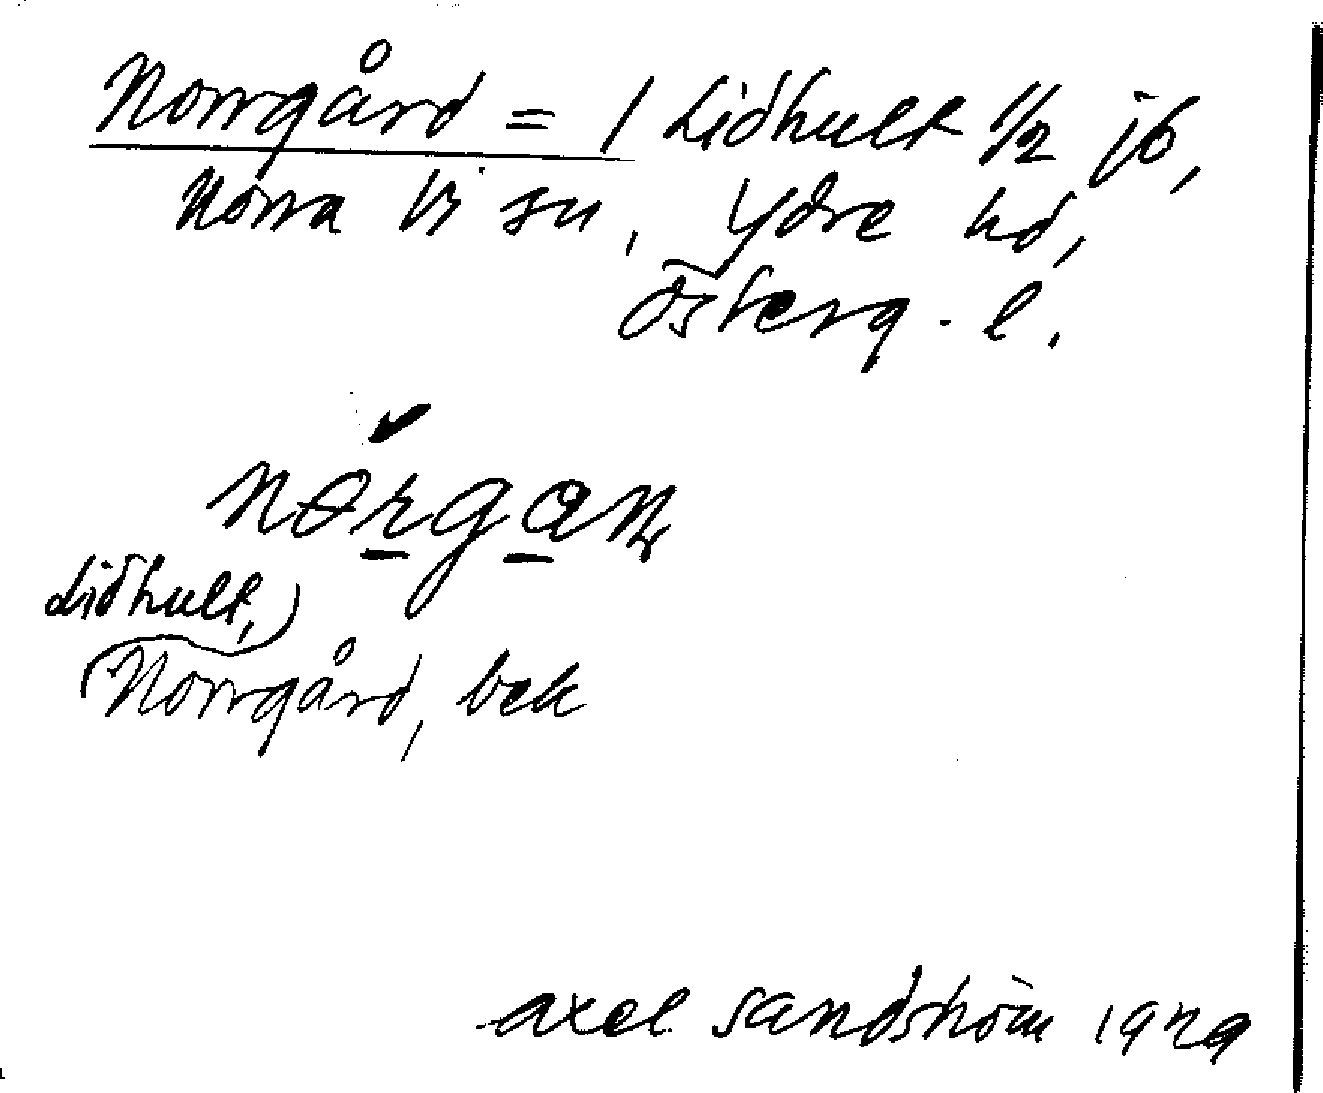 Norrgård = 1 Lidhult 1/2 jb,
Norra Vi sn, Ydre hd,
Österg. l.
Lidhult,
Norrgård, bek
Axel Sandström 1929